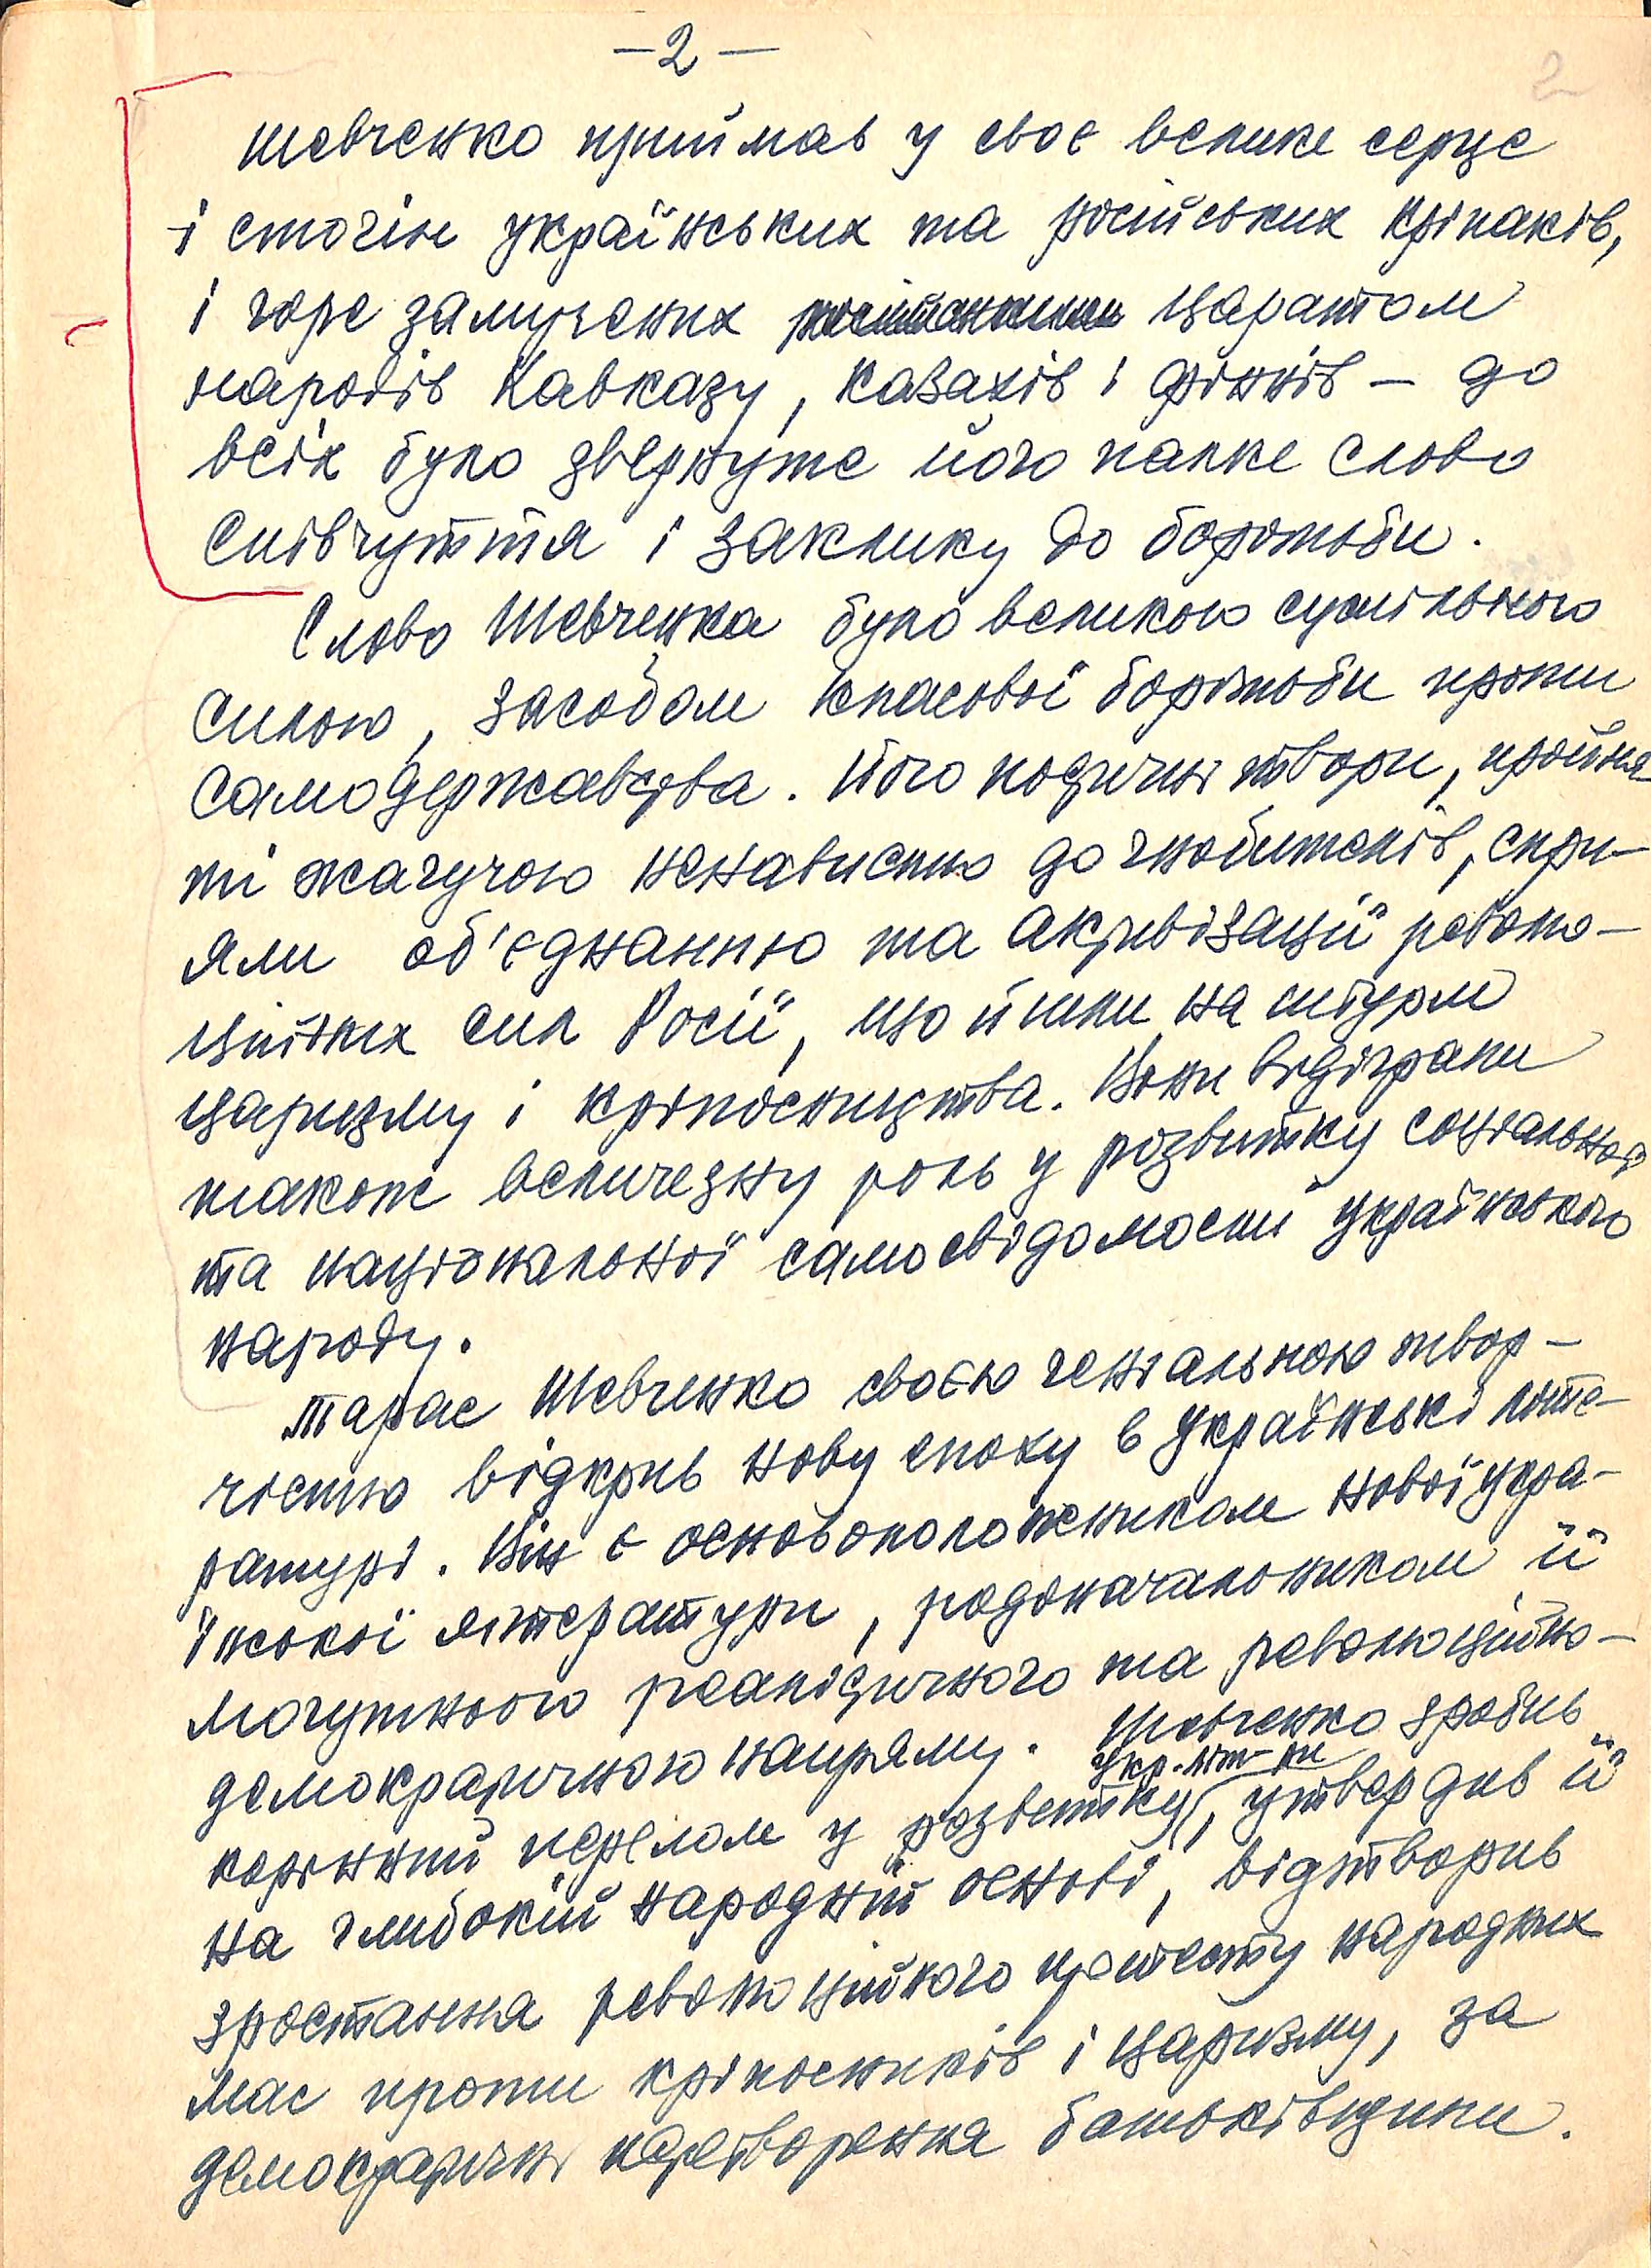 – 2 –
2
Шевченко приймав у своє велике серце
і стогін українських та російських кріпаків,
і горе замучених царатом
народів Кавказу, казахів і фіннів – до
всіх було звернуте його палке слово
співчуття і заклику до боротьби.
Слово Шевченка було великою суспільною
силою, засобом класової боротьби проти
самодержавства. Його поетичні твори, пройня-
ті жагучою ненавистю до гнобителів, спри-
яли об'єднанню та активізації револю-
ційних сил Росії, що йшли на штурм
царизму і кріпосництва. Вони відіграли
також величезну роль у розвитку соціальної
та національної самосвідомості українського
народу.
Тарас Шевченко своєю геніальною твор-
чістю відкрив нову епоху в українські літе-
ратурі. Він є основоположником нової укра-
їнської літератури, родоначальником її
могутнього реалістичного та революційно-
демократичного напряму. Шевченко зробив
укр. літ-ри
корінний перелом у розвитку, утвердив її
на глибокій народній основі, відтворив
зростання революційного протесту народних
мас проти кріпосників і царизму, за
демократичні перетворення батьківщини.